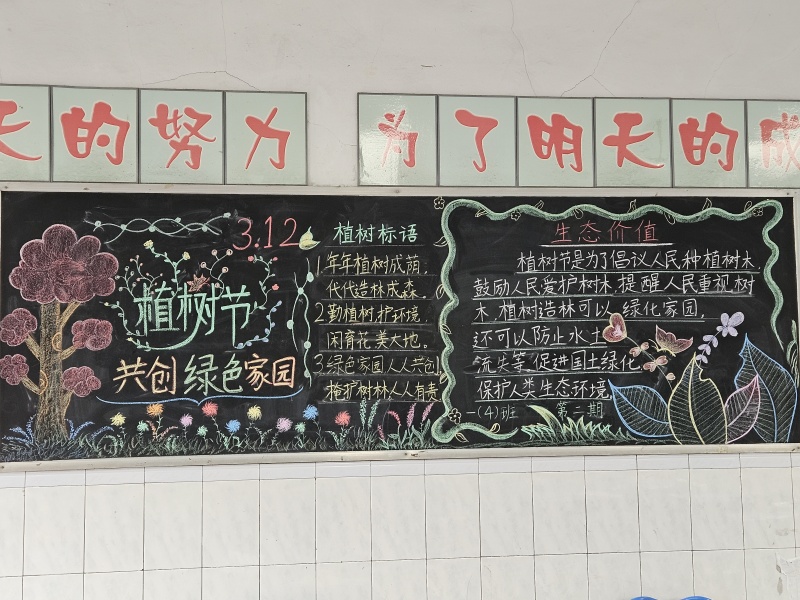 天的努力 为了明天的成
3.12
植树节
共创绿色家园
植树标语
1.年年植树成荫,
代代造林成森.
2.勤植树 护环境
闲育花 美大地.
3.绿色家园人人共创
掩护树林人人有责
生态价值
植树节是为了倡议人民种植树木,
鼓励人民爱护树木,提醒人民重视树
木,植树造林可以 绿化家园,
还可以防止水土
流失等,促进国土绿化,
保护人类生态环境
一(4)班 第二期